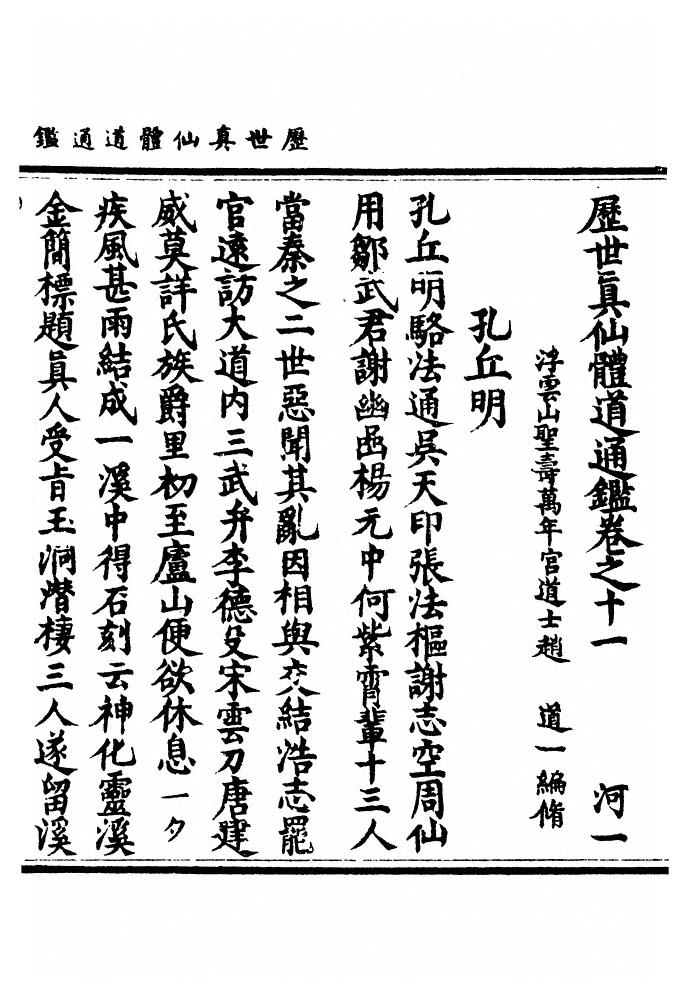 歷世真仙體道通鑑
歷世眞仙體道通鑑卷之十一 河一
浮雲山聖壽萬年宮道士趙 道一編脩
孔丘明
孔丘明駱法通吳天印張法樞謝志空周仙
用鄒武君謝幽函楊元中何紫霄輩十三人
當秦之二世惡聞其亂因相與交結浩志罷
官遠訪大道内三武弁李德殳宋雲刀唐建
威莫詳氏族爵里初至廬山便欲休息一夕
疾風甚雨結成一溪中得石刻云神化靈溪
金簡標題眞人受旨玉洞潛棲三人遂留溪